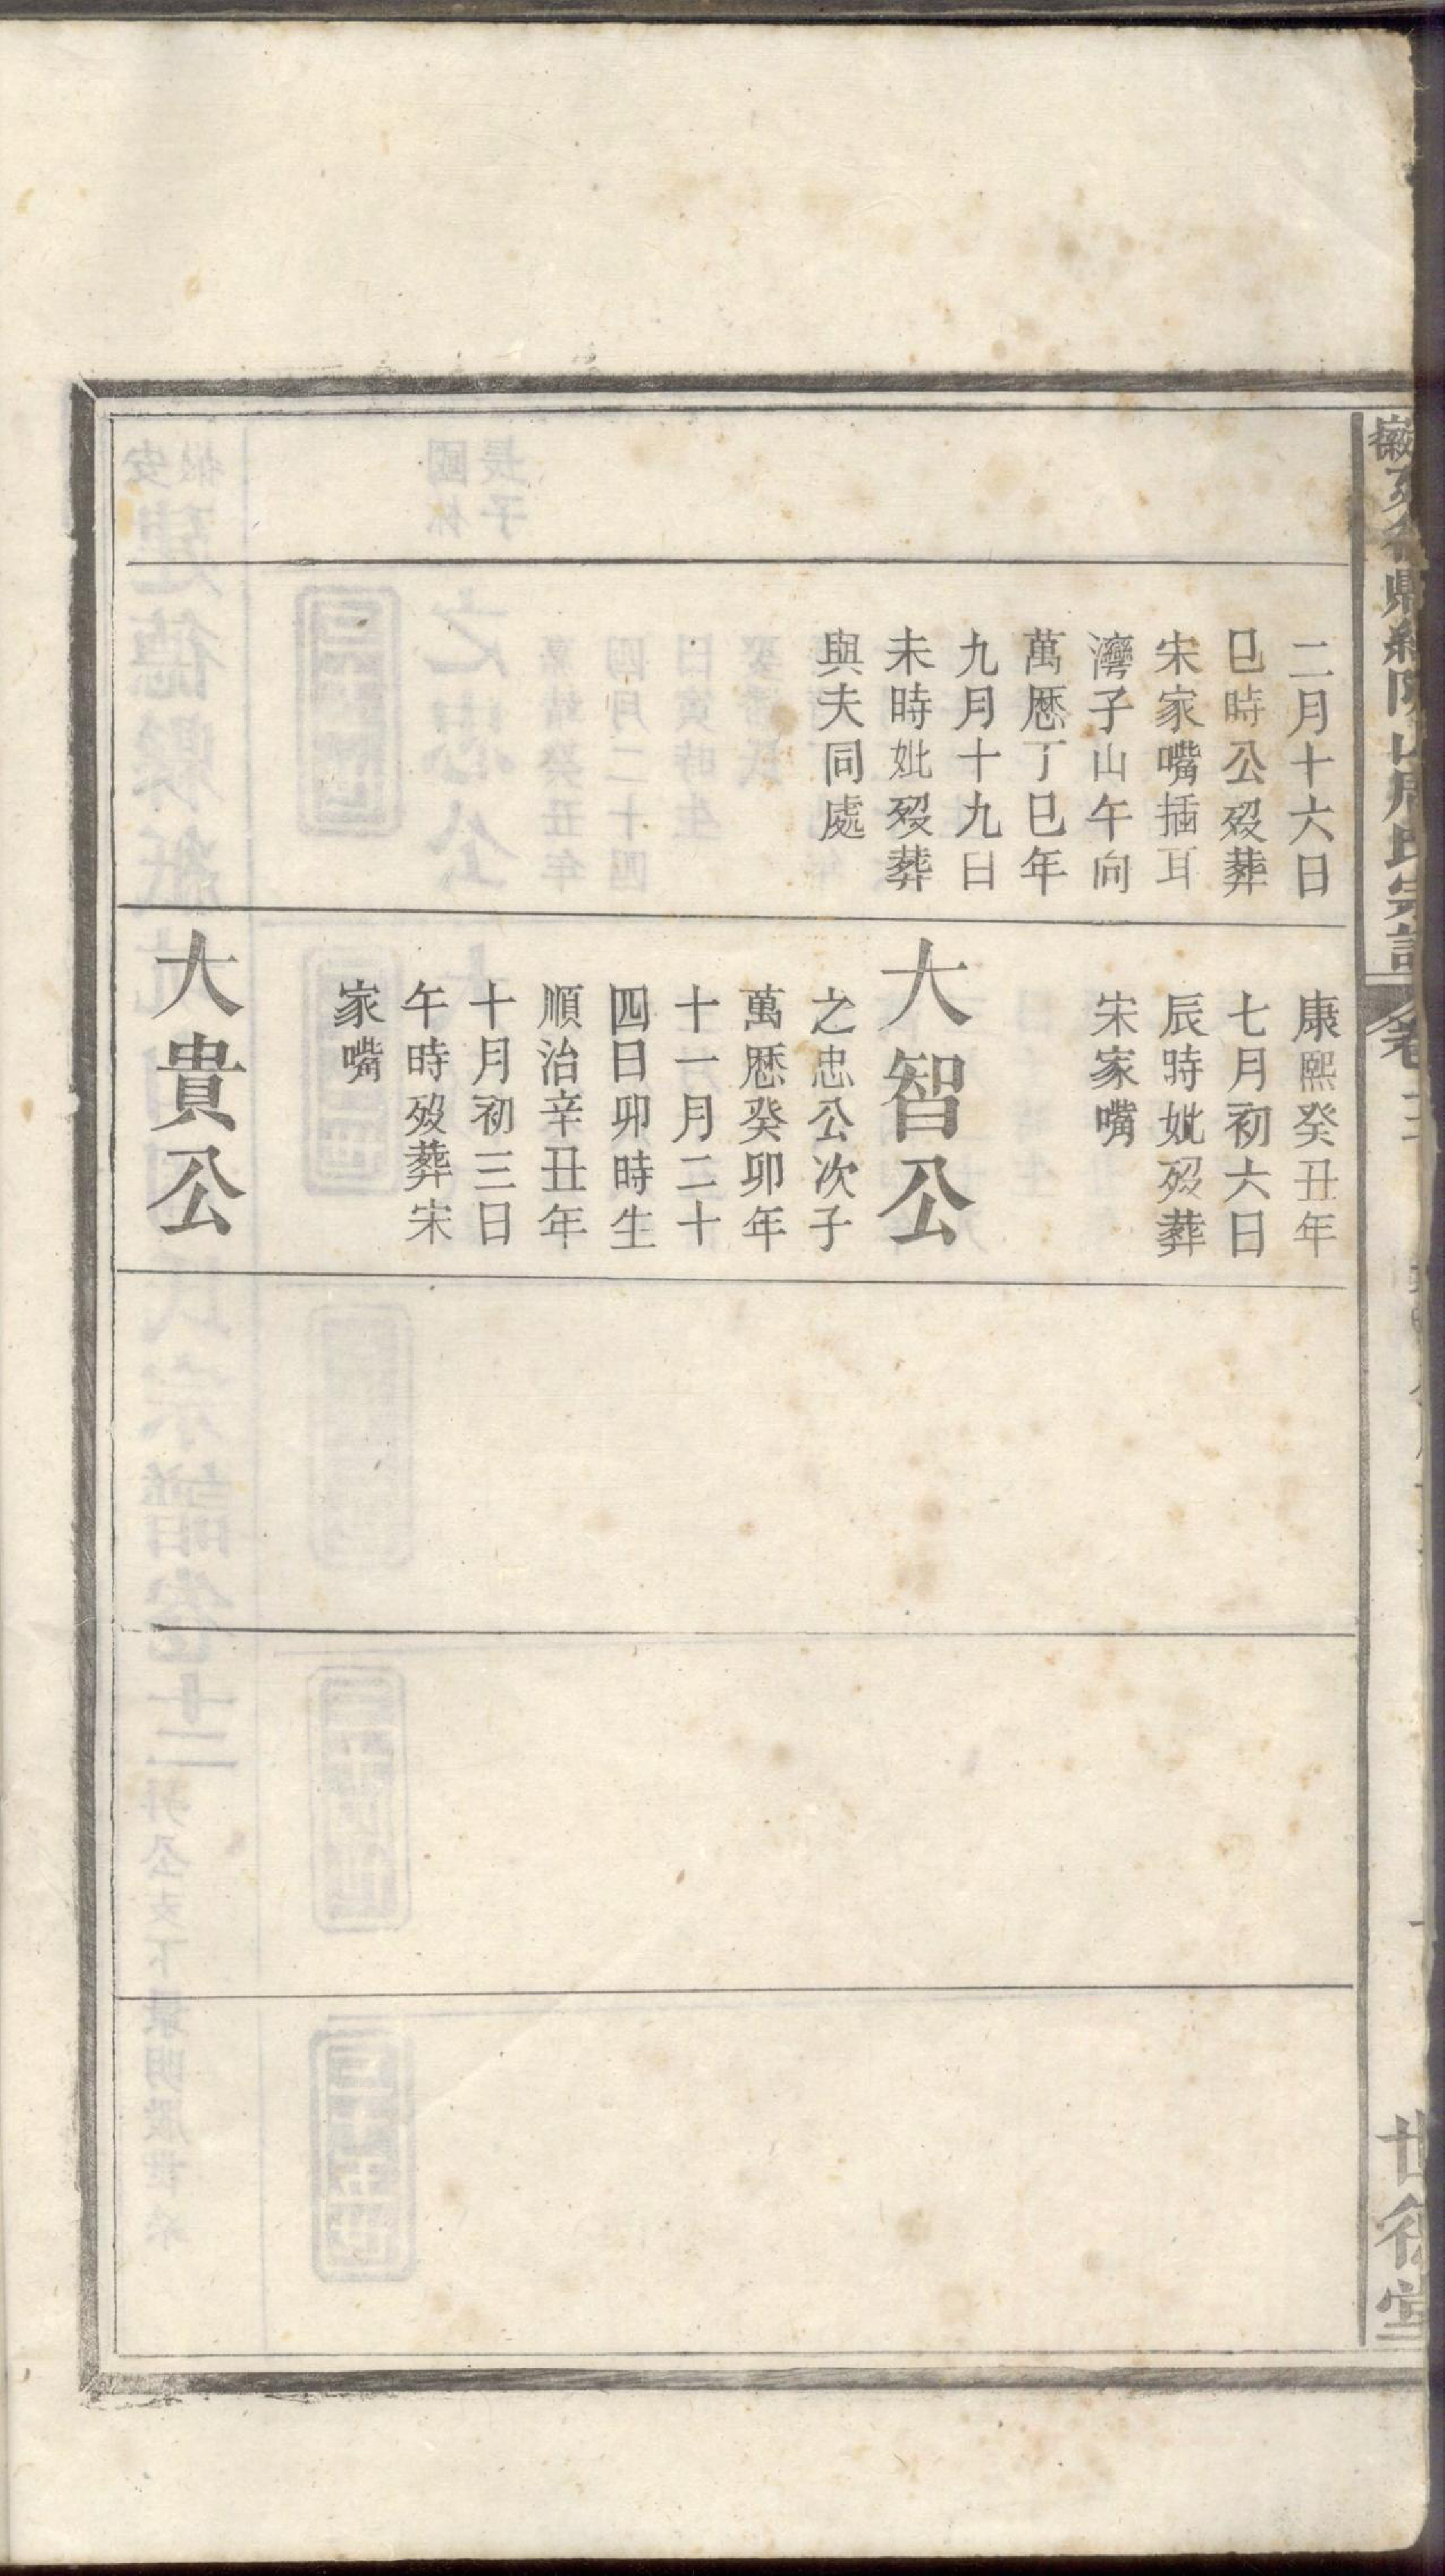 二月十六日
巳時公歿葬
宋家嘴插耳
灣子山午向
萬厯丁巳年
九月十九日
未時妣歿葬
與夫同處
康熙癸丑年
七月初六日
辰時妣歿葬
宋家嘴
大智公
之忠公次子
萬厯癸卯年
十一月二十
四日卯時生
順治辛丑年
十月初三日
午時歿葬宋
家嘴
大貴公
世德堂